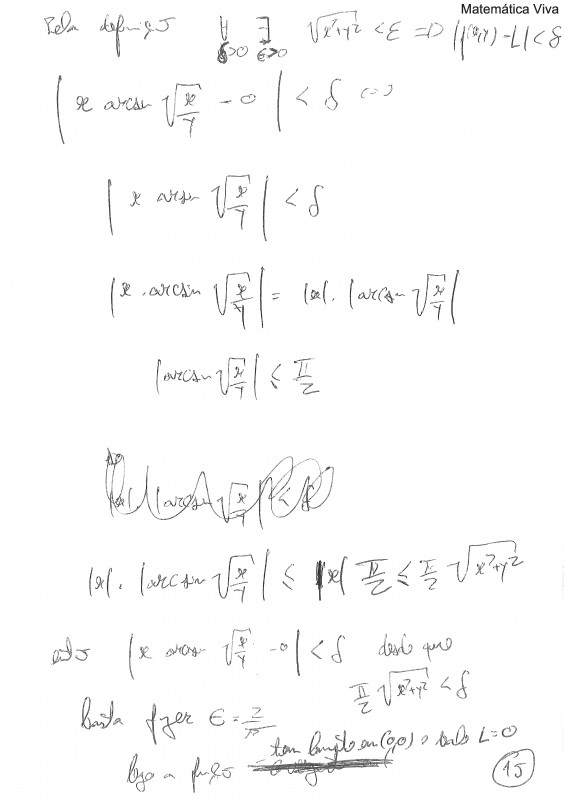 Matemática Viva
Pela definição ∀ δ>0 ∃ ε>0 √x²+y² < ε ⇒ |f(x,y) - L| < δ
| x arcsin √(x/y) - 0 | < δ ⇔
| x arcsin √(x/y) | < δ
| x . arcsin √(x/y) | = |x| . | arcsin √(x/y) |
| arcsin √(x/y) | ≤ π/2
|x| . | arcsin √(x/y) | ≤ |x| π/2 ≤ π/2 √x²+y²
então | x arcsin √(x/y) - 0 | < δ desde que
π/2 √x²+y² < δ
basta fazer ε = 2/π
logo a função tem limite em (0,0) e L=0
15